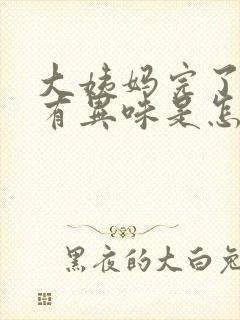 大姨妈完了
有異味是怎
黑夜的大白兔